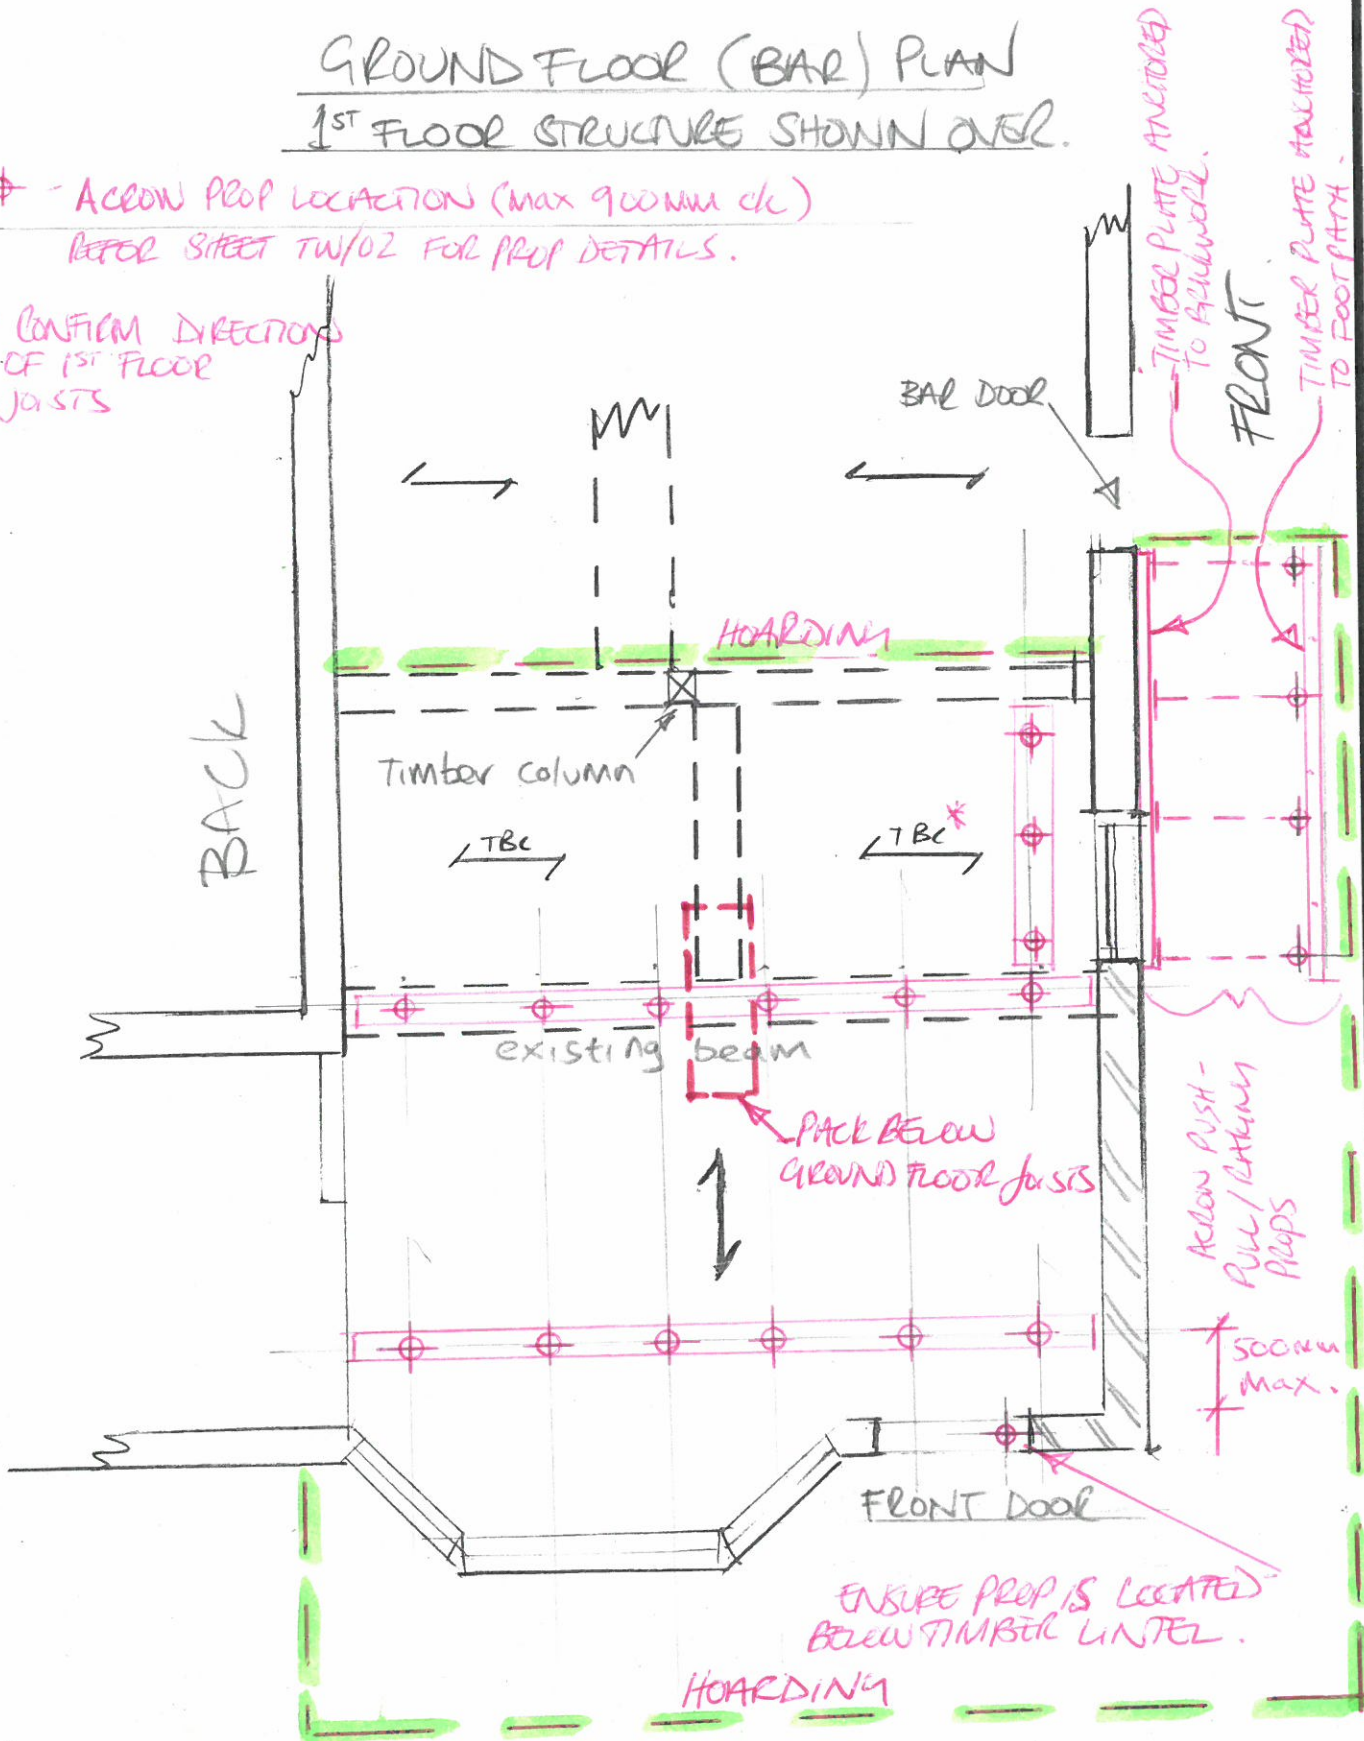 GROUND FLOOR (BAR) PLAN
1ST FLOOR STRUCTURE SHOWN OVER.
- ACROW PROP LOCACTION (MAX 900MM c/c)
REFER SHEET TW/02 FOR PROP DETAILS.
CONFIRM DIRECTIONS
OF 1ST FLOOR
JOISTS
TIMBER PLATE ANCHORED
TO BRICKWORK.
FRONT
TIMBER PLATE ANCHORED
TO FOOTPATH.
BAR DOOR
HOARDING
BACK
Timber column
TBC
TBC *
existing beam
PACK BELOW
GROUND FLOOR JOISTS
ACROW PUSH-
PULL/RAKING
PROPS
500MM
MAX.
FRONT DOOR
ENSURE PROP IS LOCATED
BELOW TIMBER LINTEL.
HOARDING